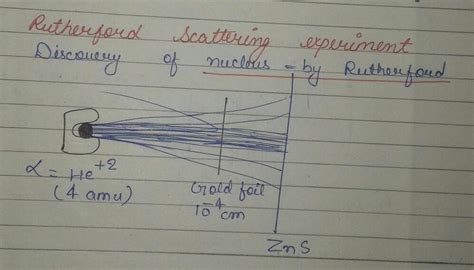 Rutherford Scattering experiment
Discovery of nucleus - by Rutherford
α = He⁺²
(4 amu)
Gold foil
10⁻⁴ cm
ZnS